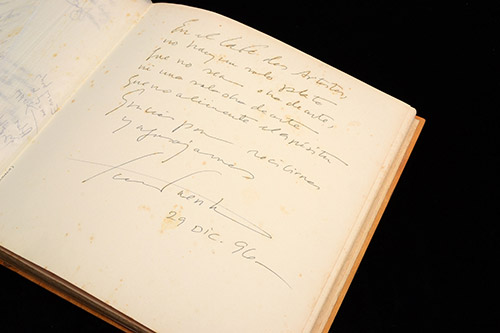 En el Café dos Artistas,
no hay un solo plato
que no sea obra de arte,
ni una sola obra de arte
que no alimente el espíritu
Gracias por recibirnos
y
29 DIC. 96